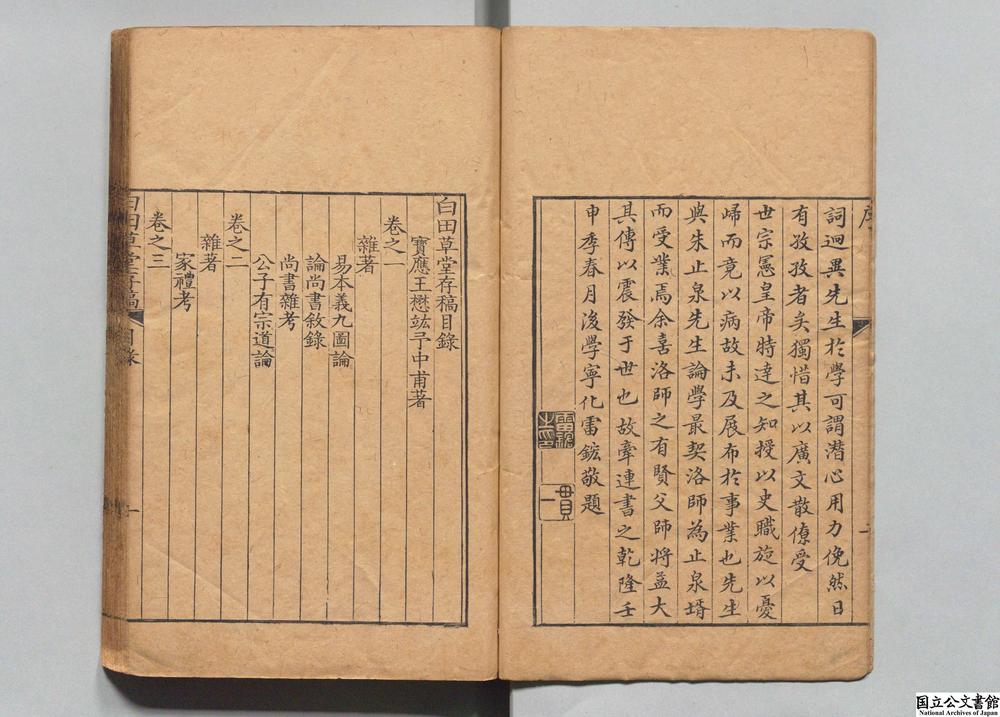 序
詞迥異先生於學可謂潛心用力俛然日
有孜孜者矣獨惜其以廣文散僚受
世宗憲皇帝特達之知授以史職旋以憂
歸而竟以病故未及展布於事業也先生
與朱止泉先生論學最契洛師為止泉壻
而受業焉余喜洛師之有賢父師將益大
其傳以震發于世也故牽連書之乾隆壬
申季春月後學寧化雷鋐敬題
雷鋐之印
一貫
白田草堂存稿目錄
寶應王懋竑予中甫著
卷之一
雜著
易本義九圖論
論尚書敘錄
尚書雜考
公子有宗道論
卷之二
雜著
家禮考
卷之三
白田草堂存稿
目錄
一
国立公文書館
National Archives of Japan